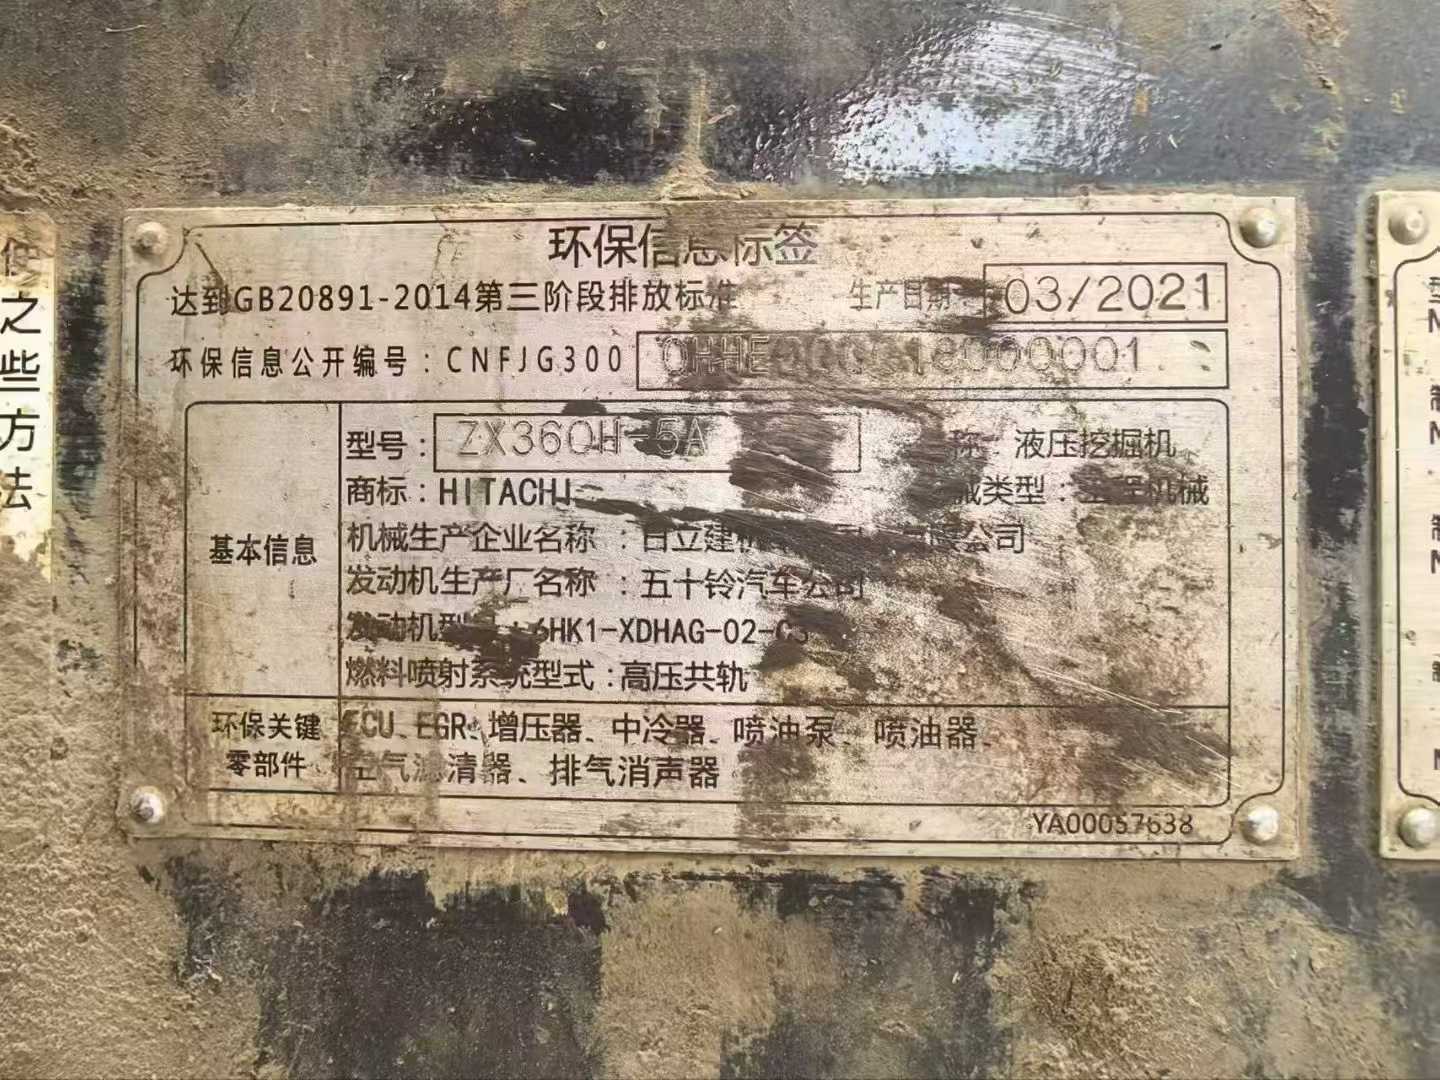 环保信息标签
达到GB20891-2014第三阶段排放标准 生产日期: 03/2021
环保信息公开编号:CNFJG300
基本信息
型号: ZX360H-5A 称: 液压挖掘机
商标:HITACHI 械类型: 工程机械
机械生产企业名称 :日立建机 有限公司
发动机生产厂名称 :五十铃汽车公司
发动机型号:6HK1-XDHAG-02-C3
燃料喷射系统型式:高压共轨
环保关键零部件
ECU、EGR、增压器、中冷器、喷油泵、喷油器、
空气滤清器、排气消声器
YA00057638
使
之
些
方
法